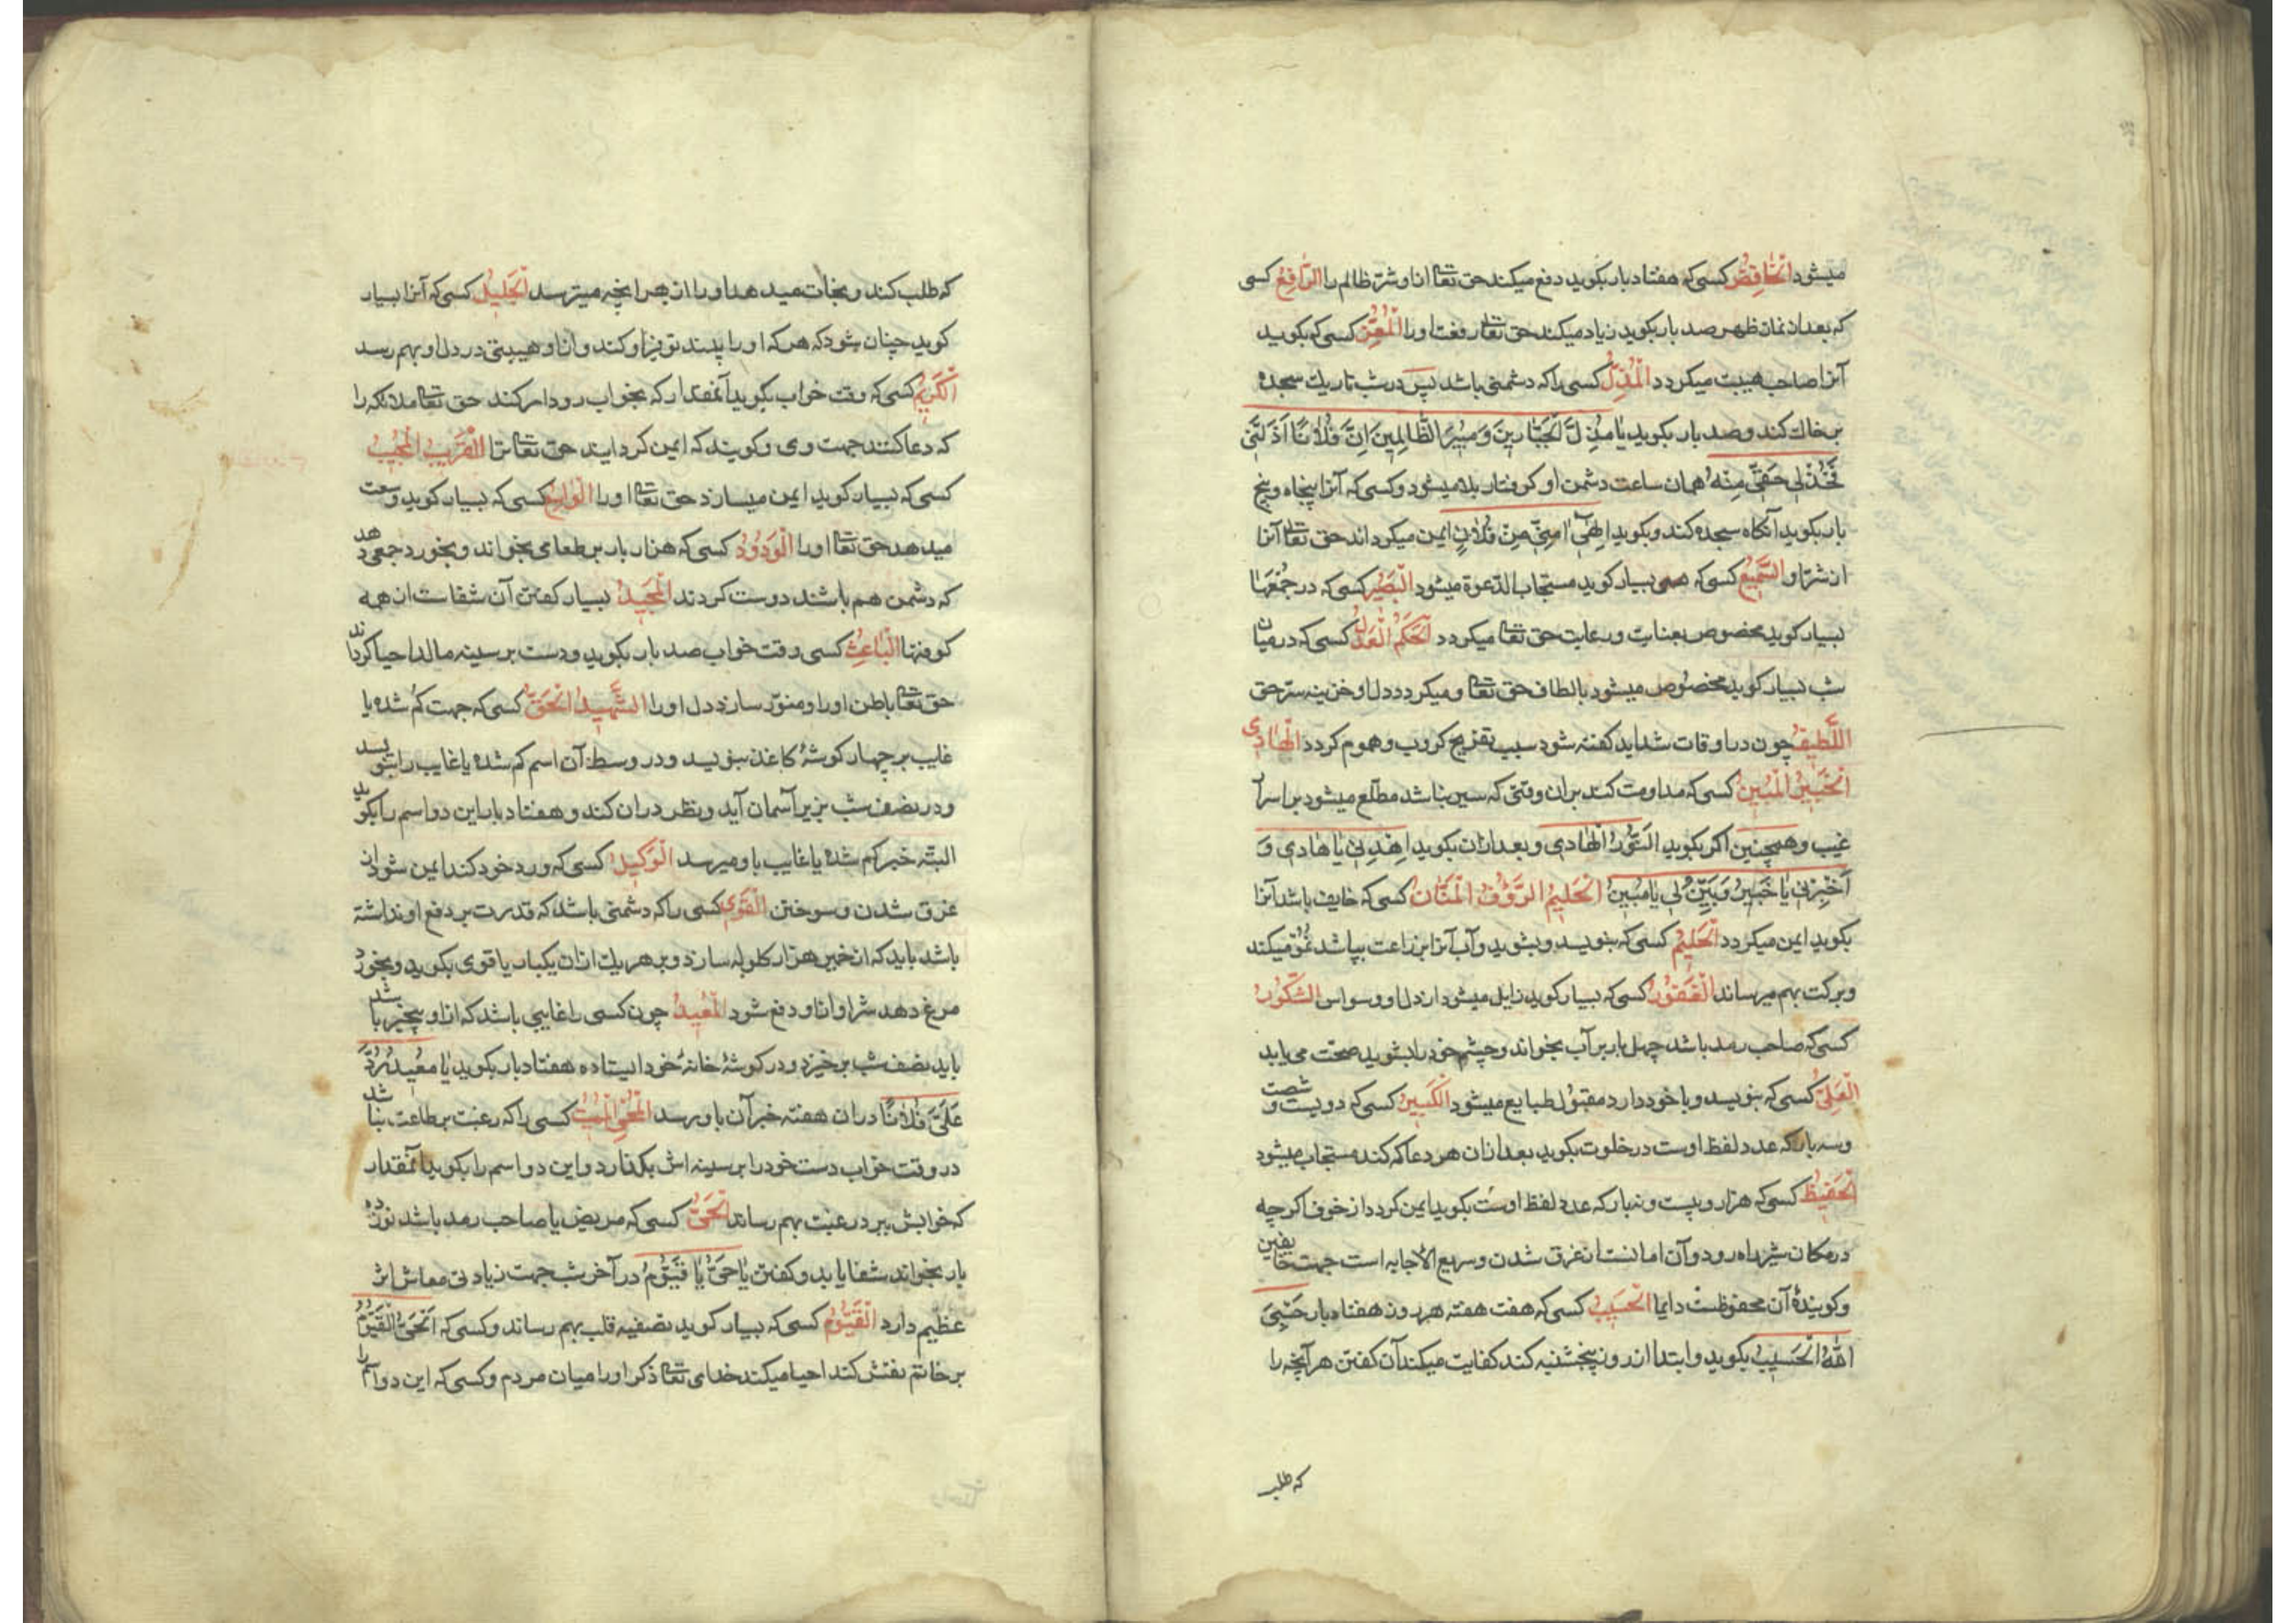 میشود الخافض کسی که هفتاد بار بکوید دفع میکند حق تعالی ازاو شر ظالم را الرافع کسی
که بعد از نماز ظهر صد بار بکوید زیاد میکند حق تعالی رفعت او را المعز کسی که بکوید
آنرا صاحب هیبت میکردد المذل کسی را که دشمنی باشد پس در شب تاریك سجده
بر خاك کند و صد بار بکوید یا مذل الجبارین و مبیر الظالمین ان فلانا اذلنی
فخذ لی حقی منه همان ساعت دشمن او کرفتار بلا میشود و کسی که آنرا پنجاه و پنج
بار بکوید آنکاه سجده کند و بکوید الهی امنی من فلان ایمن میکرداند حق تعالی آنرا
از شر او السمیع کسی که بسیار کوید مستجاب الدعوة میشود البصیر کسی که در جمعها
بسیار کوید مخصوص بعنایت و رعایت حق تعالی میکردد الحکم العدل کسی که در میان
شب بسیار کوید مخصوص میشود بالطاف حق تعالی و میکردد دل او خزینه سر حق
اللطیف چون در اوقات شداید کفته شود سبب تفریج کروب و هموم کردد الهادی
الخبیر المبین کسی که مداومت کند بران وقتی که سیر باشد مطلع میشود بر اسرار
غیب و همچنین اکر بکوید النور الهادی و بعد ازان بکوید اهدنی یا هادی و
اخبرنی یا خبیر و بین لی یا مبین الحلیم الرؤف المنان کسی که خایف باشد آنرا
بکوید ایمن میکردد الحلیم کسی که بنویسد و بشوید و آب آنرا بر زراعت بپاشد نمو میکند
و برکت بهم میرساند الغفور کسی که بسیار کوید زایل میشود از دل او وسواس الشکور
کسی که صاحب رمد باشد چهل بار بر آب بخواند و چشم خود را بشوید صحت می یابد
العلی کسی که بنویسد و با خود دارد مقبول طبایع میشود الکبیر کسی که دویست و شصت
وسه بار که عدد لفظ اوست در خلوت بکوید بعد ازان هر دعا که کند مستجاب میشود
الحفیظ کسی که هزار و بیست و نه بار که عدد لفظ اوست بکوید ایمن کردد از خوف اکرچه
در مکان شیر راه رود و آن امانست از غرق شدن و سریع الاجابه است جهت خایفین
و کویندهٔ آن محفوظست دایما الحسیب کسی که هفت هفته هر روز هفتاد بار حسبی
الله الحسیب بکوید و ابتدا از روز پنجشنبه کند کفایت میکند آن کفتن هر آنچه را
که طلب
که طلب کند و نجات میدهد او را از هر انچه میترسد الجلیل کسی که آنرا بسیار
کوید چنان شود که هر که او را بیند توقیر او کند و ازاو هیبتی در دل او بهم رسد
الکریم کسی که وقت خواب بکوید آنمقدار که بخواب رود امر کند حق تعالی ملائکه را
که دعا کنند جهت وی و کویند که ایمن کرداند حق تعالی ترا القریب المجیب
کسی که بسیار کوید ایمن میسازد حق تعالی او را الواسع کسی که بسیار کوید وسعت
میدهد حق تعالی او را الودود کسی که هزار بار بر طعامی بخواند و بخورد جمعی دهد
که دشمن هم باشند دوست کردند المجید بسیار کفتن آن شفاست از همه
کوفتها الباعث کسی وقت خواب صد بار بکوید و دست بر سینه مالد احیا کرداند
حق تعالی باطن او را و منور سازد دل او را الشهید الحق کسی که جهت کم شده یا
غایب بر چهار کوشهٔ کاغذ بنویسد و در وسط آن اسم کم شده یا غایب را بنویسد
و در نصف شب بزیر آسمان آید و نظر دران کند و هفتاد بار این دو اسم را بکوید
البته خبر کم شده یا غایب باو میرسد الوکیل کسی که ورد خود کند ایمن شود از
غرق شدن و سوختن القوی کسی را که دشمنی باشد که قدرت بر دفع او نداشته
باشد باید که از خمیر هزار کلوله سازد و بر هر یك ازان یکبار یا قوی بکوید و بخورد
مرغ دهد شر او ازاو دفع شود المعید چون کسی را غایبی باشد که ازاو بیخبر باشد
باید نصف شب برخیزد و در کوشهٔ خانهٔ خود ایستاده هفتاد بار بکوید یا معید رد
علی فلانا دران هفته خبر آن باو رسد المحیی الممیت کسی را که رغبت بر طاعت نباشد
در وقت خواب دست خود را بر سینه اش بکذارد و این دو اسم را بکوید آنمقدار
که خوابش ببرد رغبت بهم رساند الحی کسی که مریض یا صاحب رمد باشد نوزده
بار بخواند شفا یابد و کفتن یا حی یا قیوم در آخر شب جهت زیادتی معاش اثر
عظیم دارد القیوم کسی که بسیار کوید تصفیه قلب بهم رساند و کسی که الحی القیوم
بر خاتم نقش کند احیا میکند خدای تعالی ذکر او را میان مردم و کسی که این دو اسم را